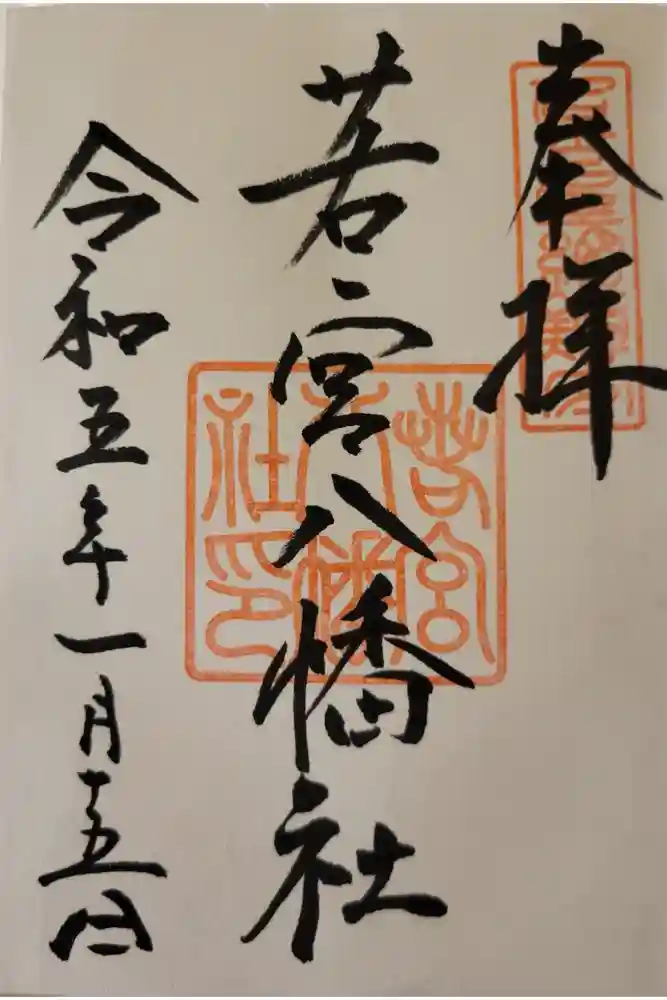 奉拝
若宮八幡社
令和五年一月十五日
若宮八幡社印